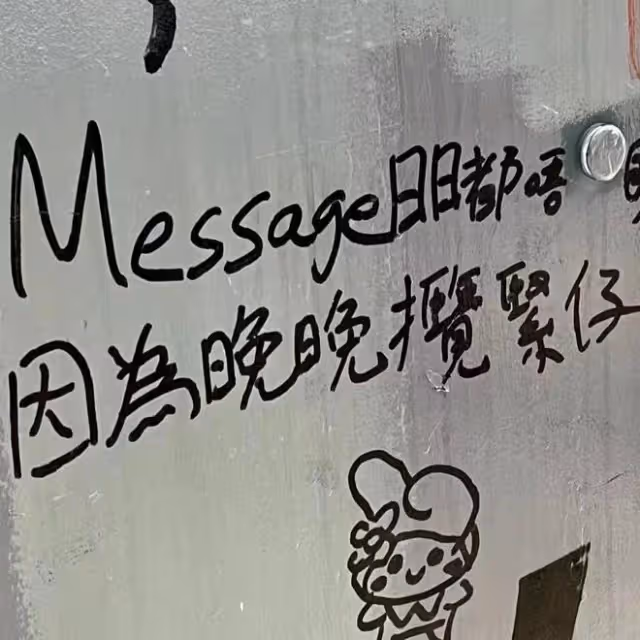 Message日日都唔
因為晚晚攬緊仔